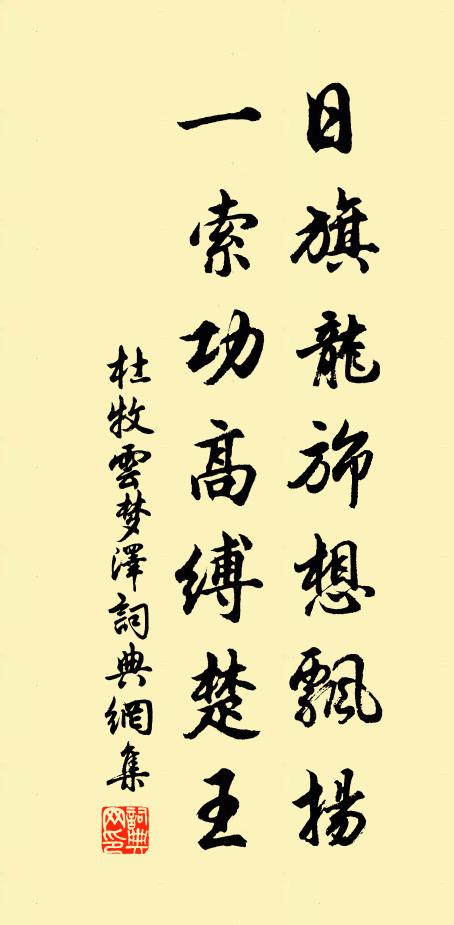 日旗龍旆想飄揚
一索功高縛楚王
杜牧雲梦澤詞典網集
詞典
网印